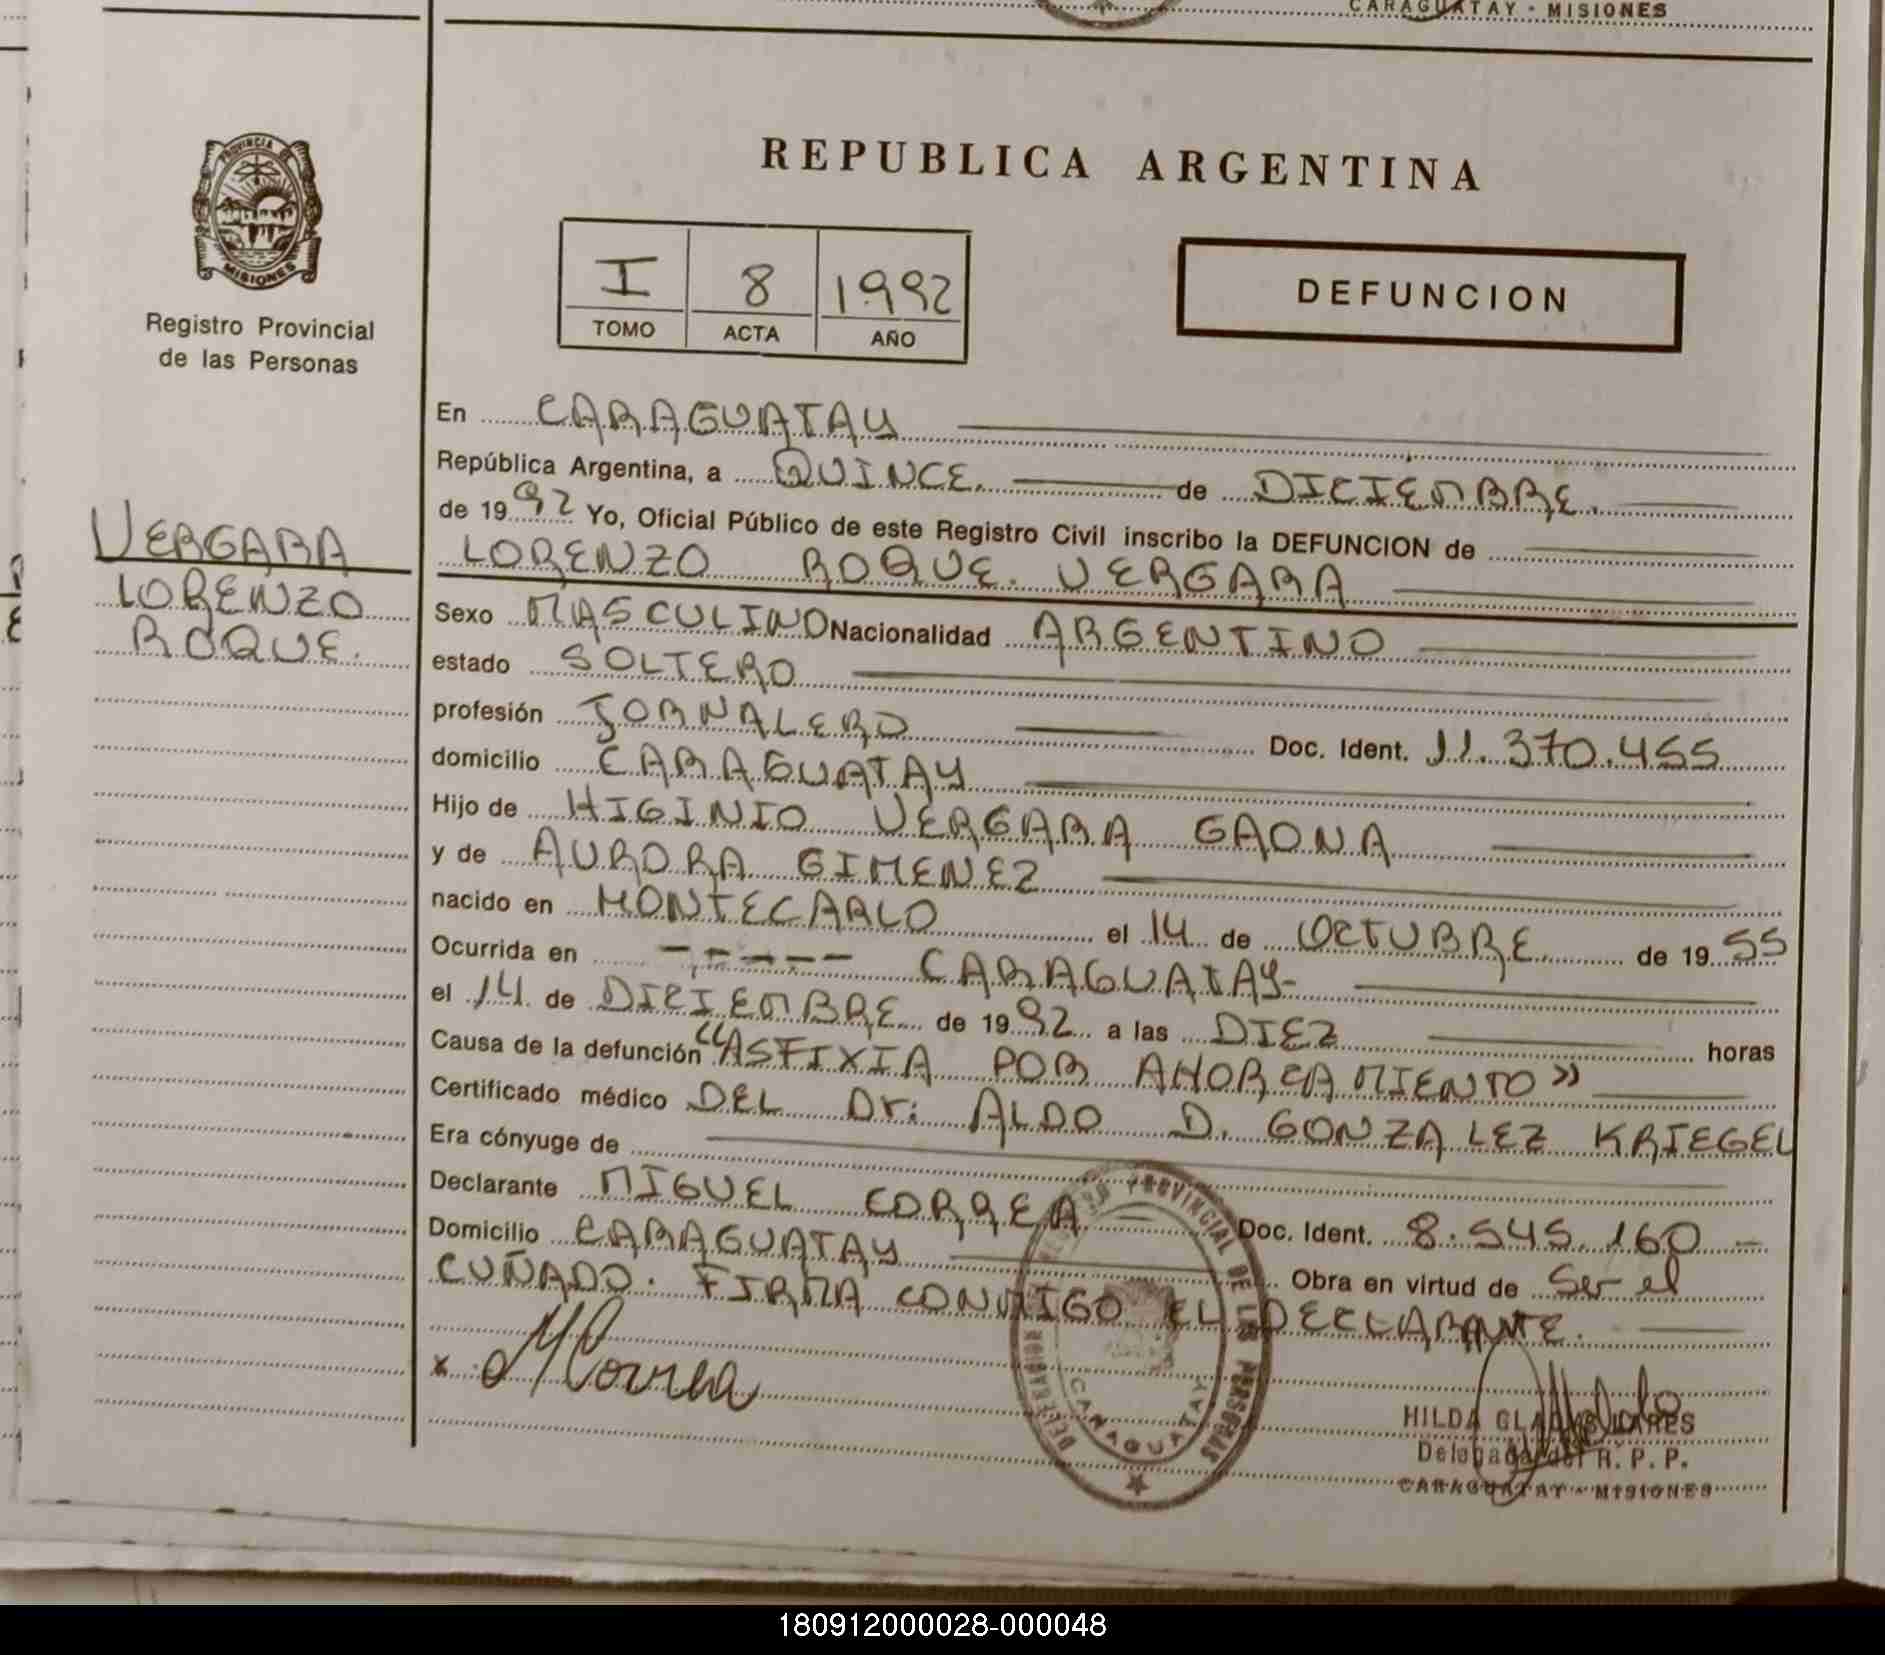 CARAGUATAY - MISIONES
PROVINCIA DE
MISIONES
Registro Provincial
de las Personas
REPUBLICA ARGENTINA
I 8 1992
TOMO ACTA AÑO
DEFUNCION
VERGARA
LORENZO
ROQUE.
En CARAGUATAY
República Argentina, a QUINCE. de DICIEMBRE.
de 1992 Yo, Oficial Público de este Registro Civil inscribo la DEFUNCION de
LORENZO ROQUE. VERGARA
Sexo MASCULINO Nacionalidad ARGENTINO
estado SOLTERO
profesión JORNALERO Doc. Ident. 11.370.455
domicilio CARAGUATAY
Hijo de HIGINIO VERGARA GAONA
y de AURORA GIMENEZ
nacido en MONTECARLO el 14 de OCTUBRE. de 1955
Ocurrida en ----- CARAGUATAY-
el 14 de DICIEMBRE de 1992 a las DIEZ horas
Causa de la defunción "ASFIXIA POR AHORCAMIENTO"
Certificado médico DEL Dr: ALDO D. GONZALEZ KRIEGEL
Era cónyuge de
Declarante MIGUEL CORREA Doc. Ident. 8.545.160 -
Domicilio CARAGUATAY Obra en virtud de Ser el
CUÑADO. FIRMA CONMIGO EL DECLARANTE.
x MCorrea
DELEGACION REGISTRO PROVINCIAL DE LAS PERSONAS
CARAGUATAY
HILDA GLADYS
Delegada del R. P. P.
CARAGUATAY - MISIONES
180912000028-000048